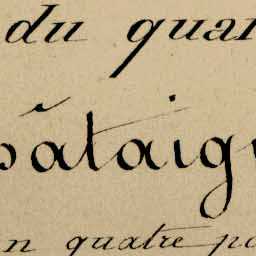 du quar
bâtaig
n quatre po